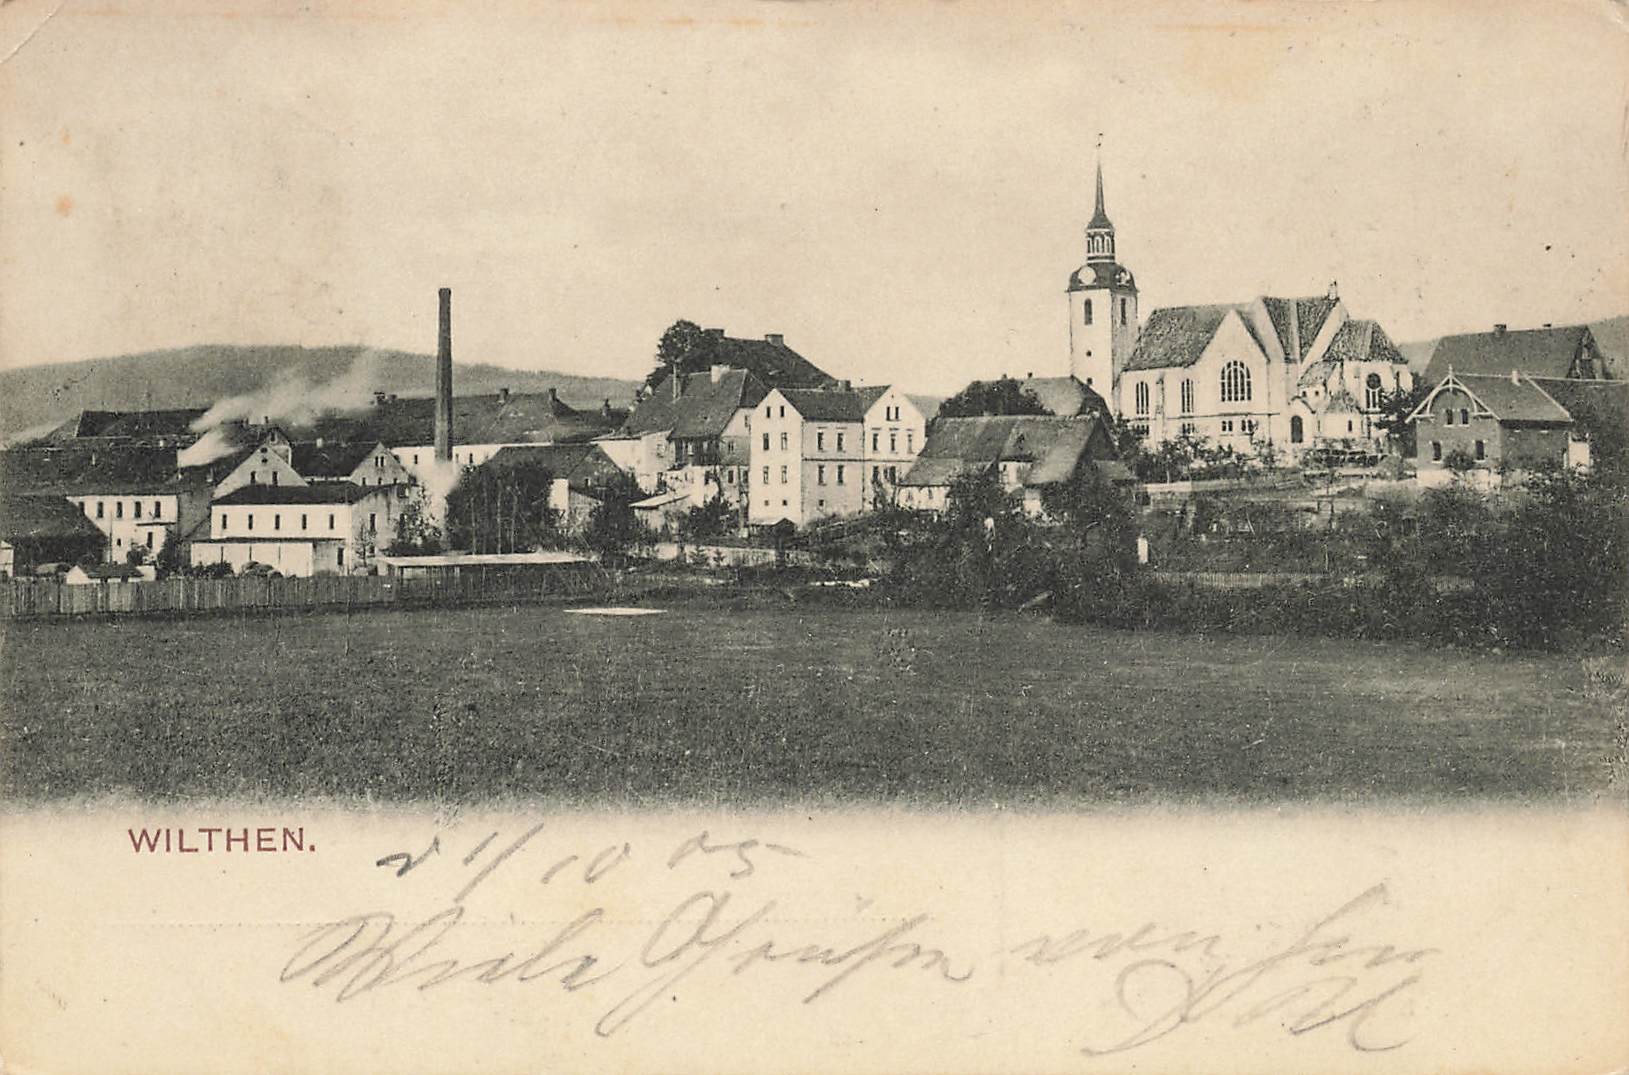 WILTHEN.
d 1/10 05
Viele Grüße von hier